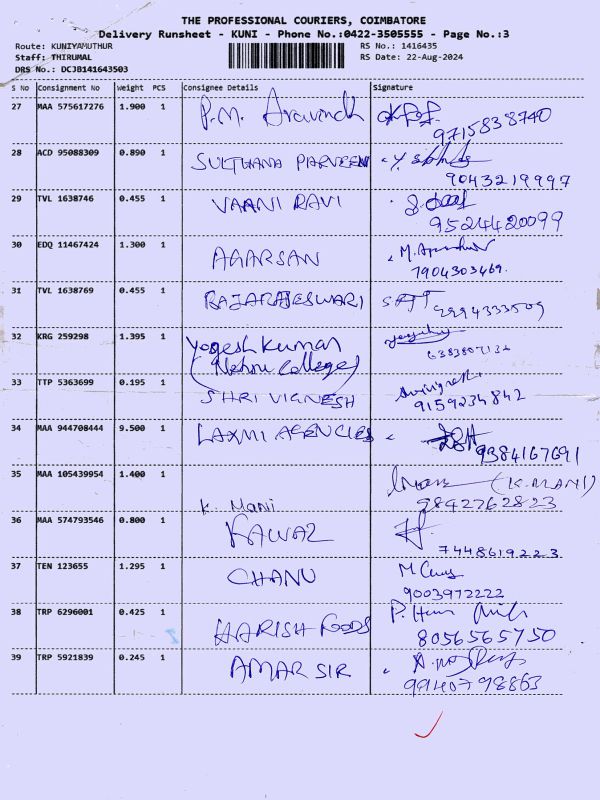 THE PROFESSIONAL COURIERS, COIMBATORE
Delivery Runsheet - KUNI - Phone No.:0422-3505555 - Page No.:3
Route: KUNIYAMUTHUR RS No.: 1416435
Staff: THIRUMAL RS Date: 22-Aug-2024
DRS No.: DCJB141643503
S No Consignment No Weight PCS Consignee Details Signature
27 MAA 575617276 1.900 1 P.M. Aravindh
9715838740
28 ACD 95088309 0.890 1 SULTHANA PARVEEN
9043219997
29 TVL 1638746 0.455 1 VAANI RAVI
9524420099
30 EDQ 11467424 1.300 1 AGARSAN
7904303469.
31 TVL 1638769 0.455 1 RAJARAJESWARI
9994333509
32 KRG 259298 1.395 1 Yogesh Kumar
(Nehru College)
33 TTP 5363699 0.195 1 SHRI VIGNESH
9159234842
34 MAA 944708444 9.500 1 LAXMI AGENCIES
9384167691
35 MAA 105439954 1.400 1 K. Mani (K.MANI)
9842762823
36 MAA 574793546 0.800 1 KAWAZ
7448619223
37 TEN 123655 1.295 1 CHANU
9003972222
38 TRP 6296001 0.425 1 HARISH FOODS
8056565750
39 TRP 5921839 0.245 1 AMAR SIR
9940798863